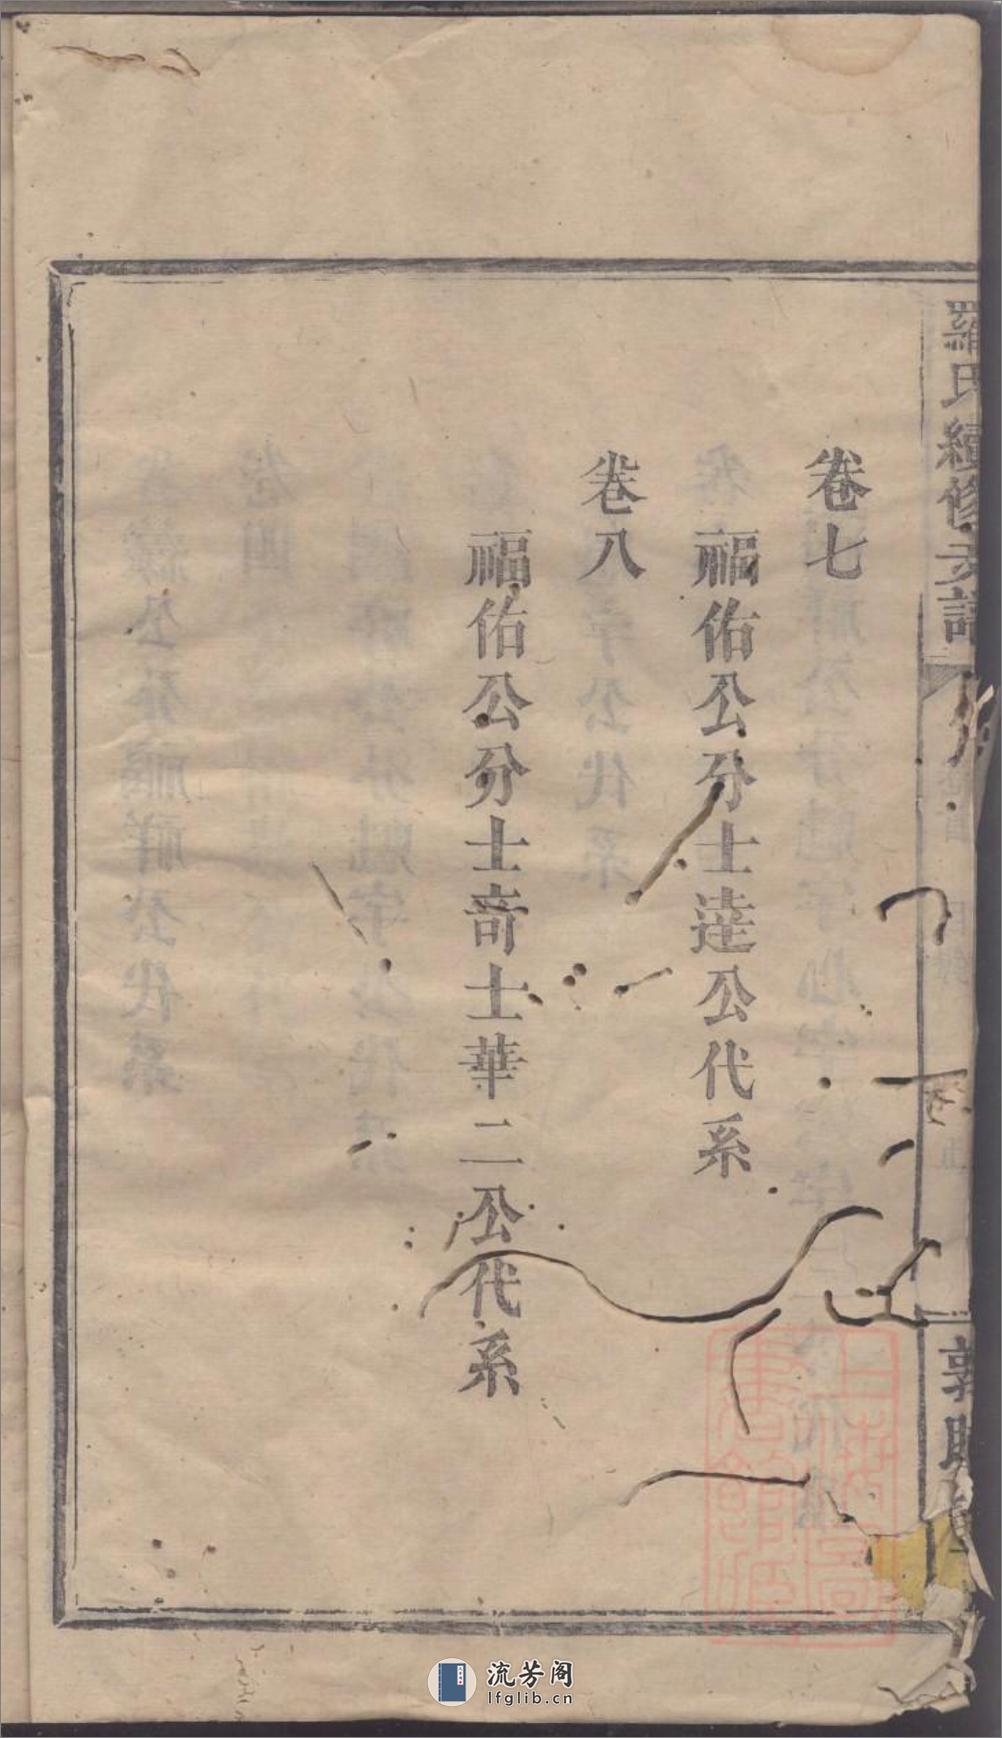 羅氏續修支譜
卷首
目錄
卷七
福佑公分士逵公代系
卷八
福佑公分士奇士華二公代系
敦睦堂
流芳阁
lfglib.cn